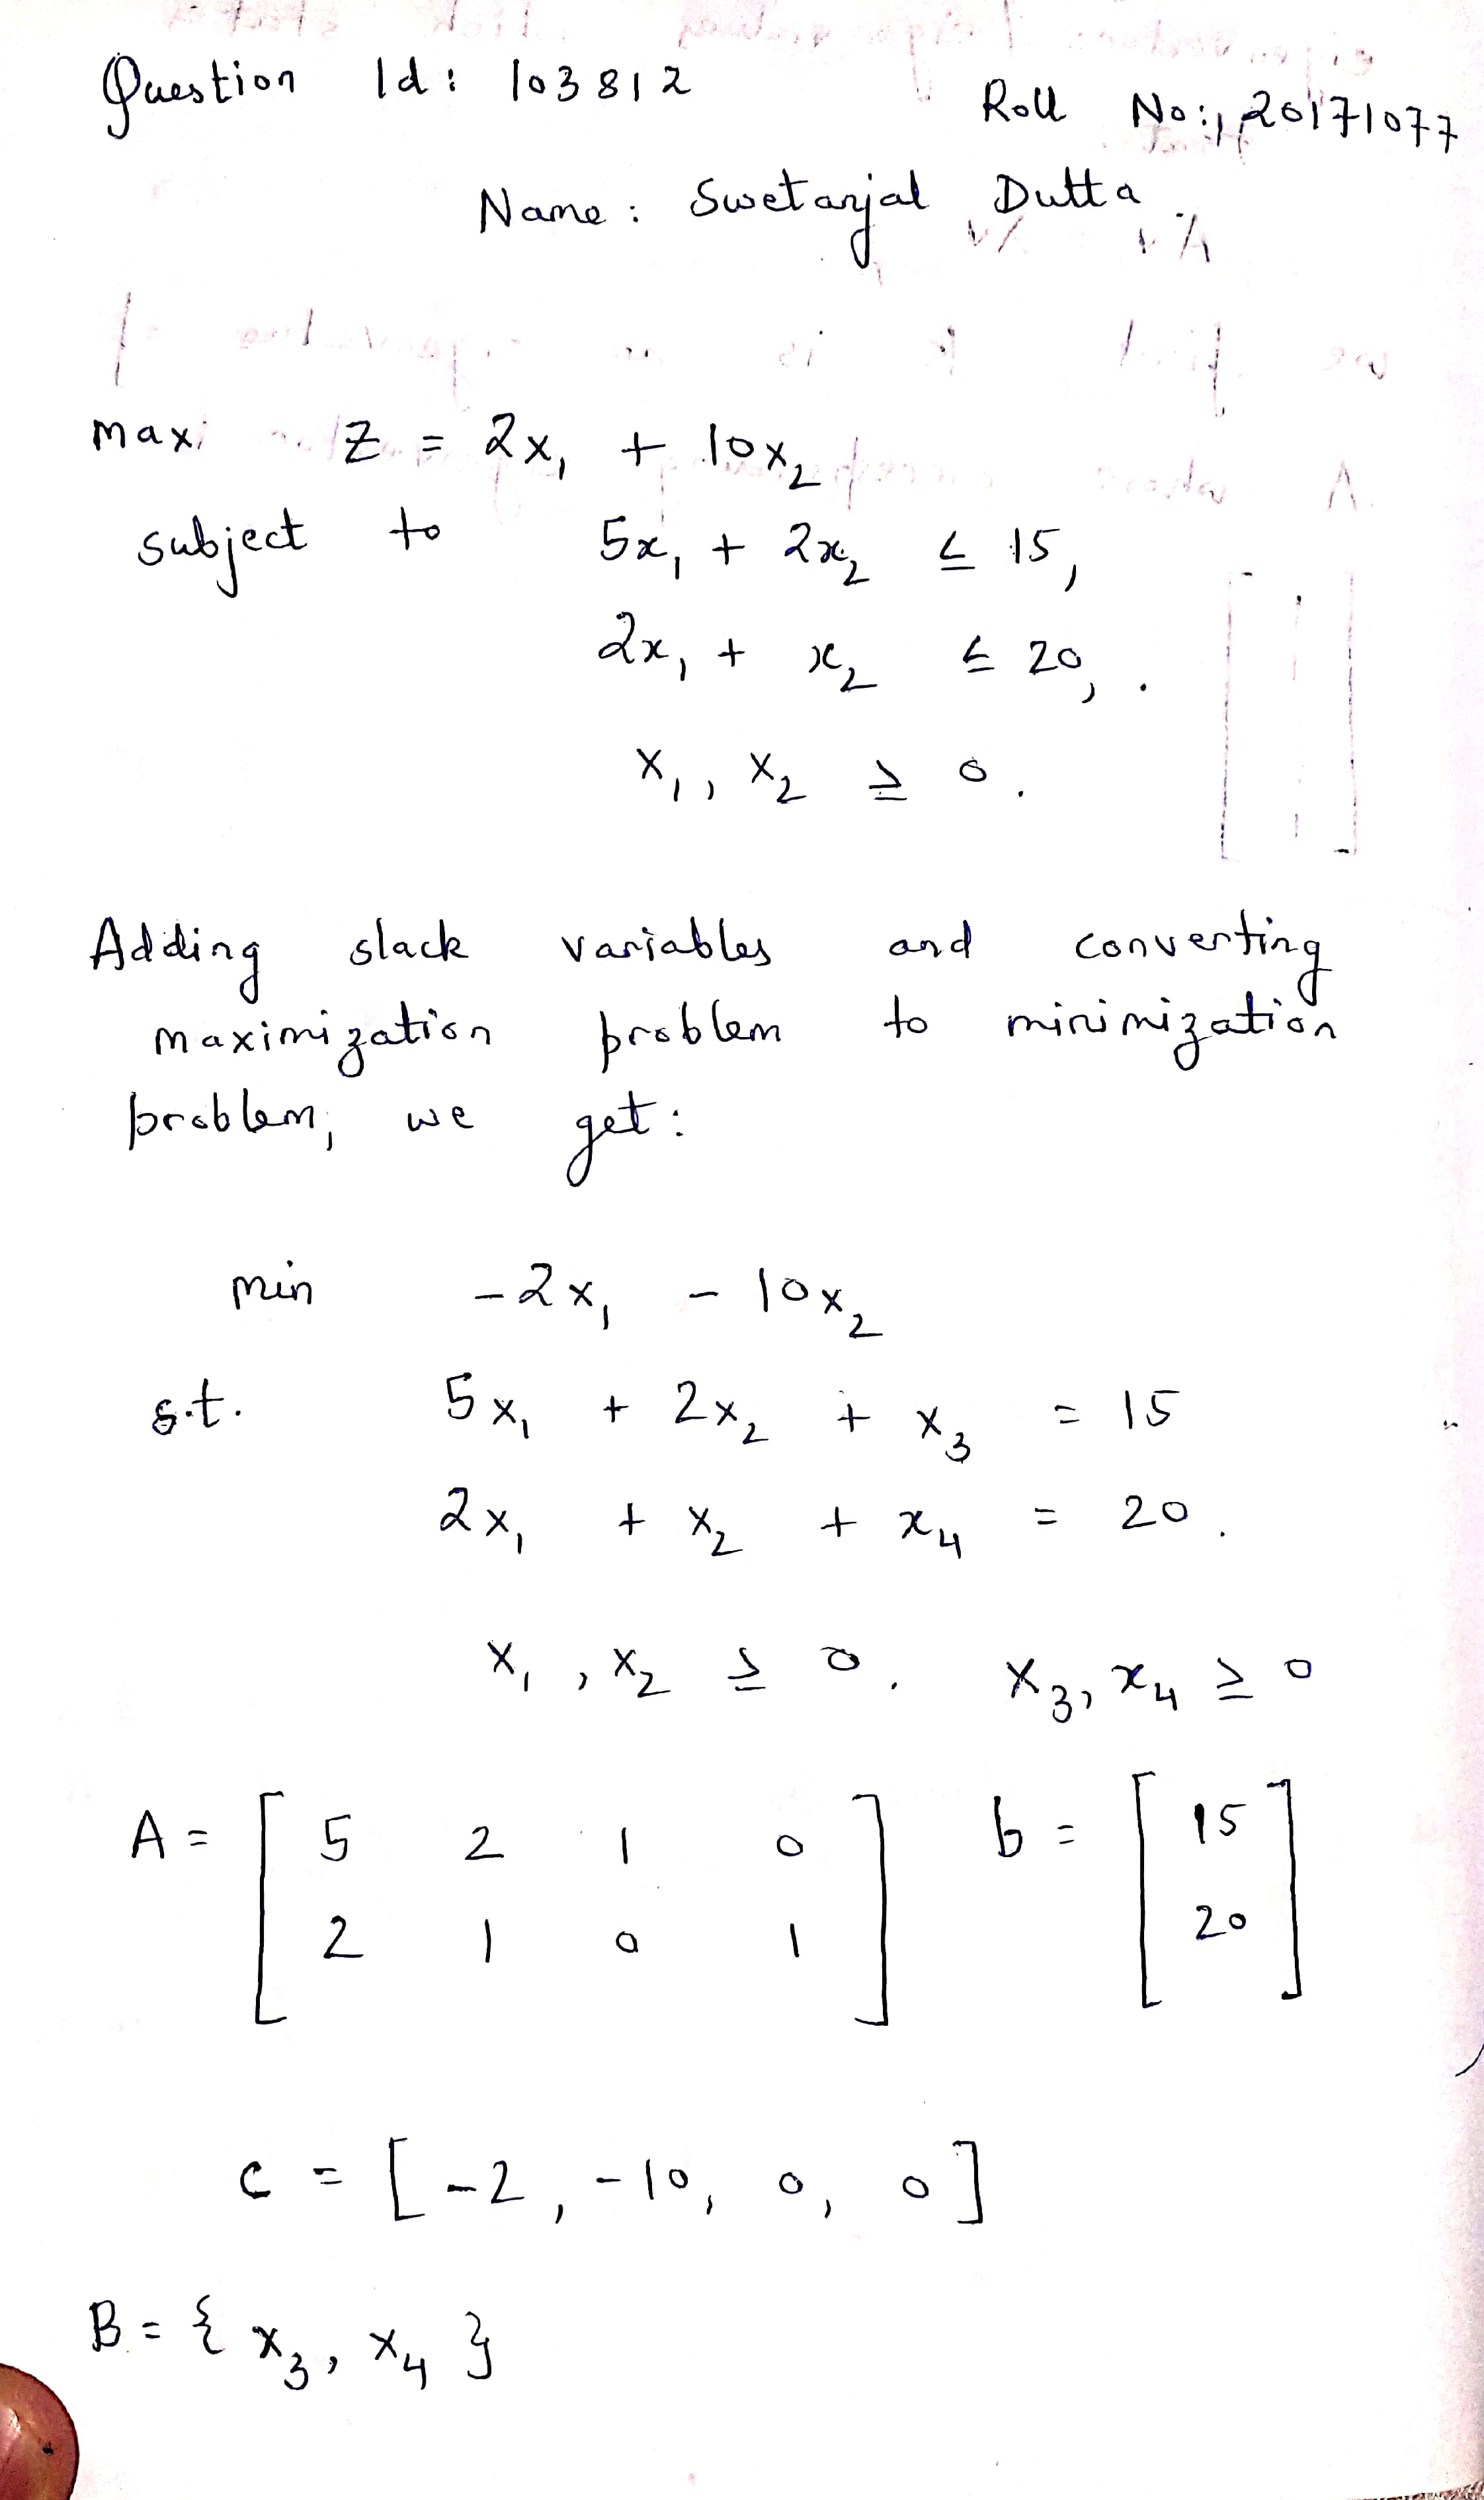 Question Id: 103812
Roll No: 20171077
Name: Swetanjal Dutta.
max. Z = 2x₁ + 10x₂
subject to 5x₁ + 2x₂ ≤ 15,
2x₁ + x₂ ≤ 20,
x₁, x₂ ≥ 0.
Adding slack variables and converting
maximization problem to minimization
problem, we get:
min -2x₁ - 10x₂
s.t. 5x₁ + 2x₂ + x₃ = 15
2x₁ + x₂ + x₄ = 20.
x₁, x₂ ≥ 0. x₃, x₄ ≥ 0
A = [ 5 2 1 0 ] b = [ 15 ]
[ 2 1 0 1 ] [ 20 ]
c = [-2, -10, 0, 0]
B = { x₃, x₄ }